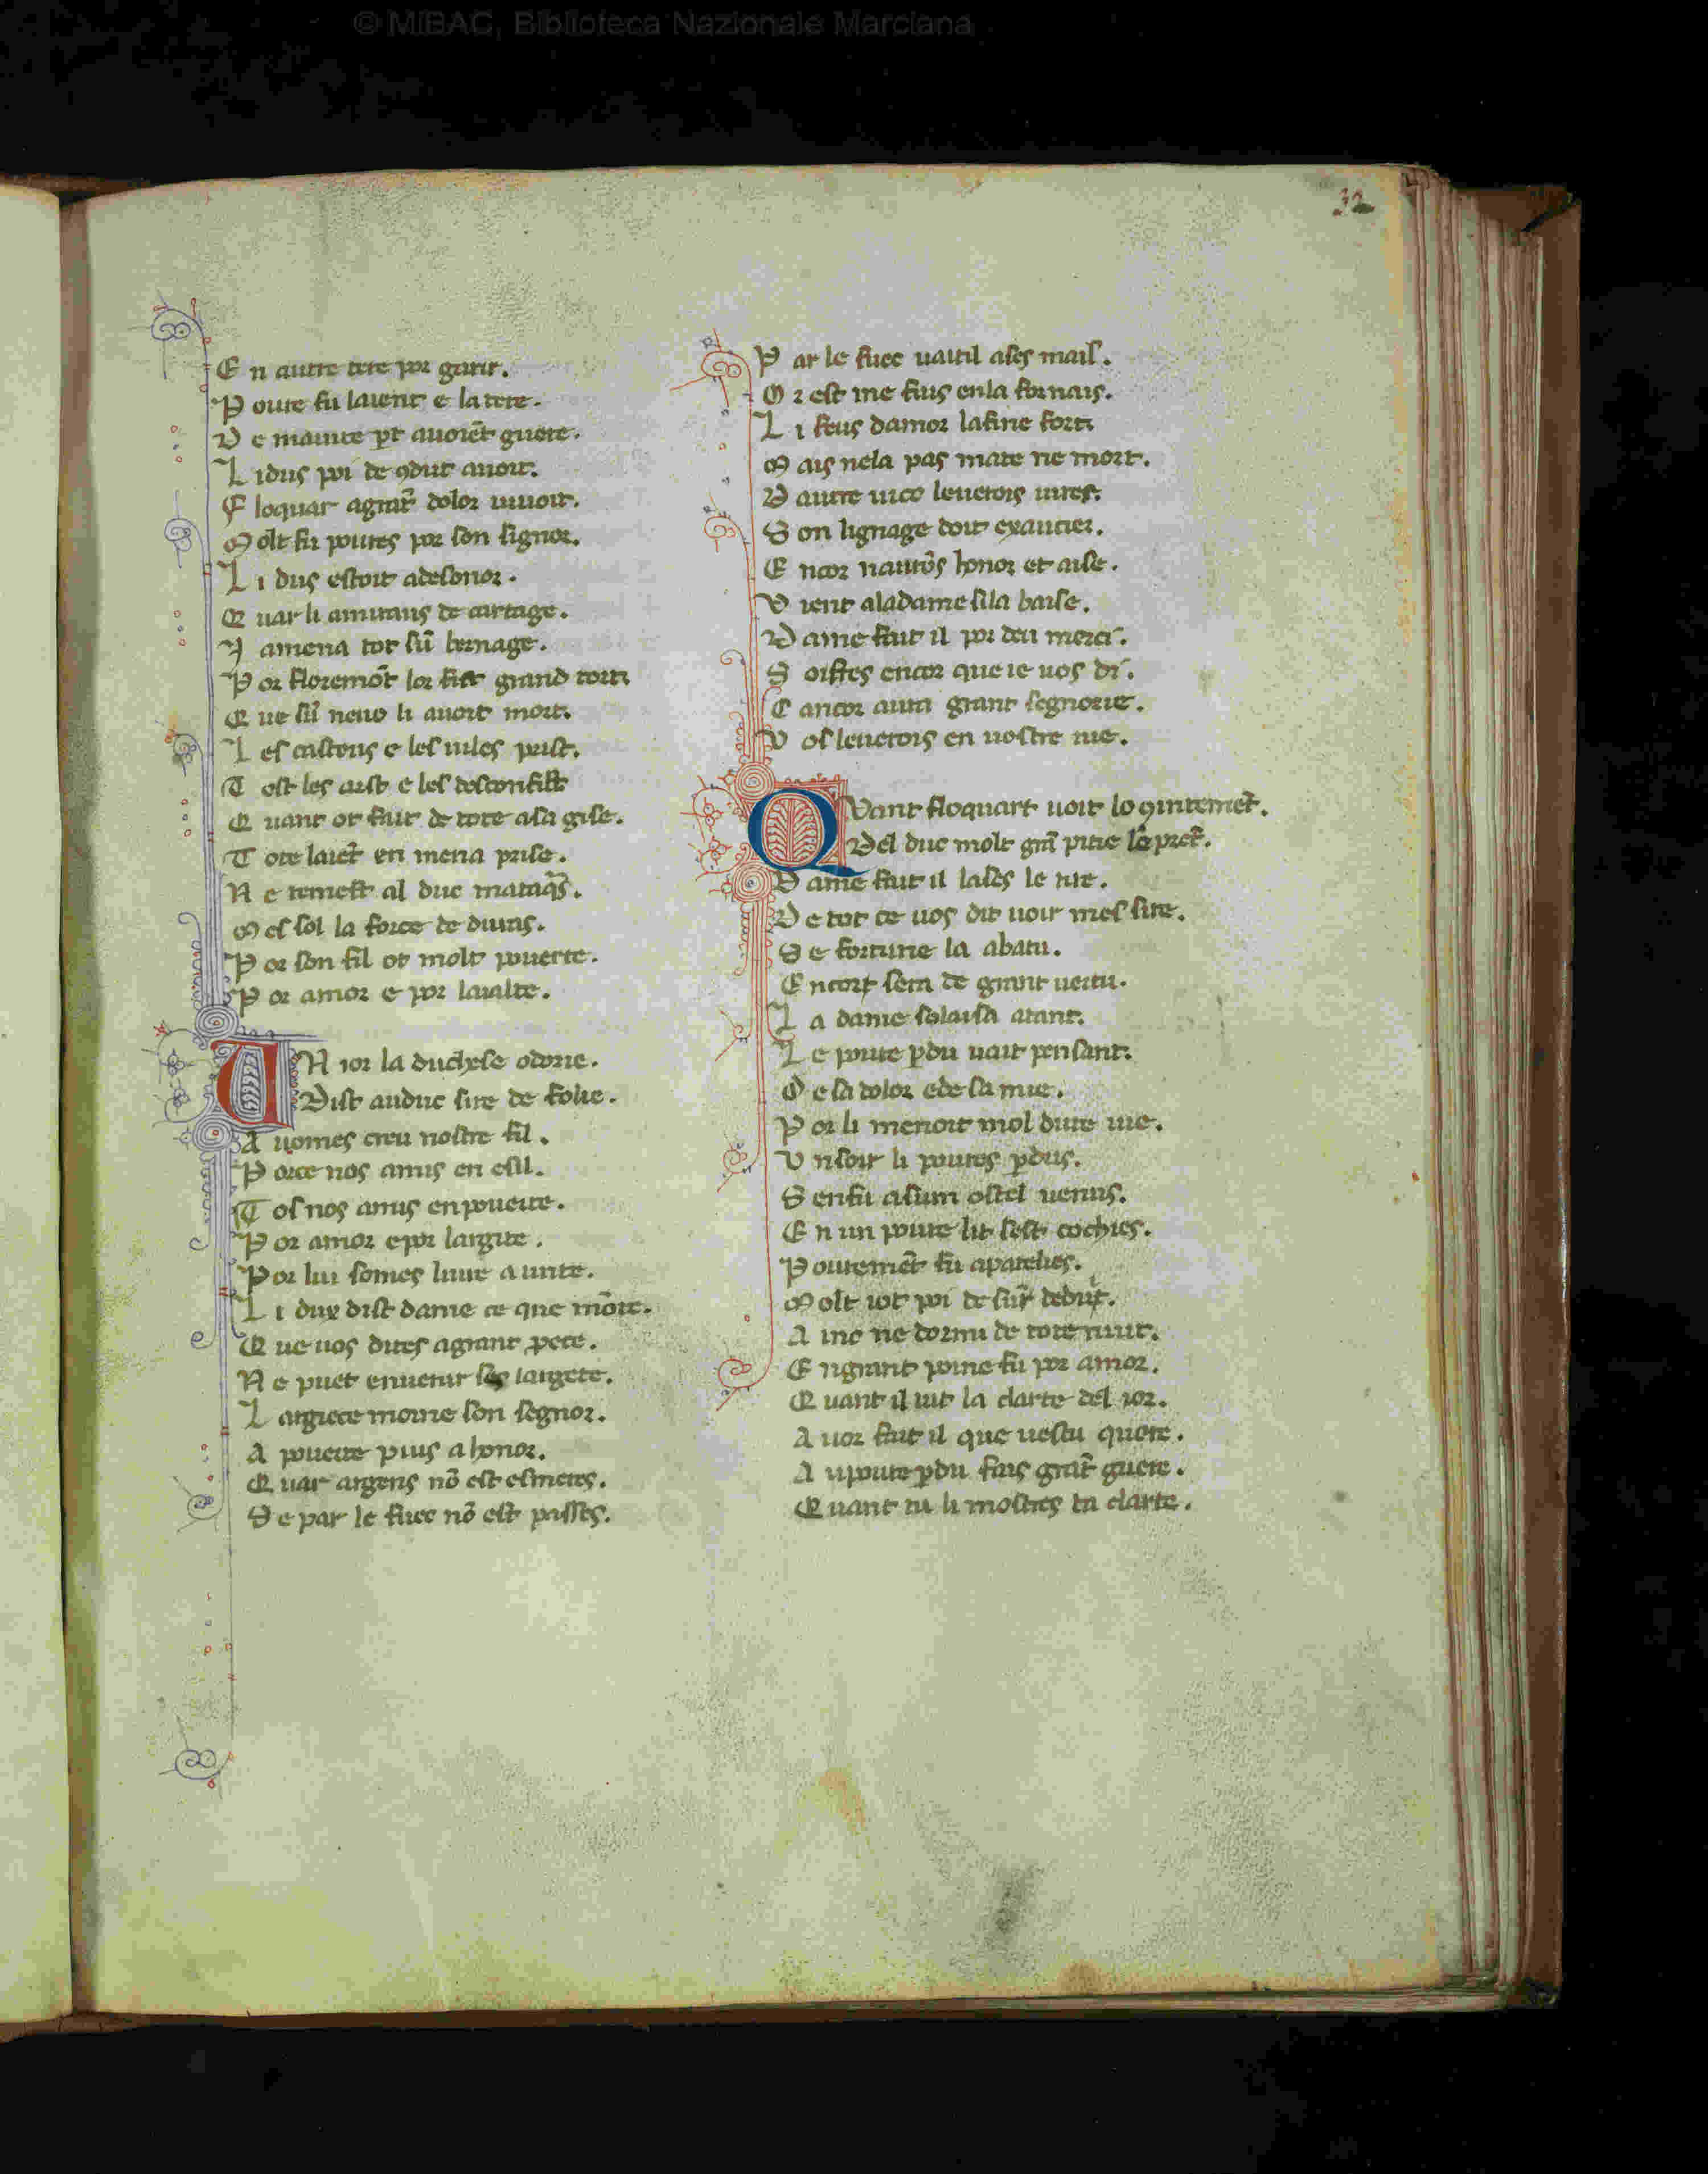 © MiBAC, Biblioteca Nazionale Marciana
32
E n autre tere por garir.
P oure fu laient e la tere.
D e maınte pt auoiẽt guere.
L i dus poi de ꝯduit auoit.
F loquar a grãt dolor uiuoit.
M olt fu poures por son signor.
L i dus estoit a desonor.
Q uar li amirans de cartage.
I amena tot sũ bernage.
P or floremõt lor fist grand tort
Q ue sũ neuo li auoit mort.
L es castous e les uiles prist.
T ost les arst e les desconfist
Q uant ot fait de tote a sa gise.
T ote laiẽt en mena prise.
N e remest al duc
M es sol la force de
P or son fil ot molt pouerte.
P or amor e por laialte.
U N ior la duchese odorie.
Dist au duc sire de folie.
A uomes creu nostre fil.
P orce nos amis en esil.
T os nos amis en pouerte.
P or amor e por largite.
P or lui somes liure a unte.
L i dux dist dame ce que mõte.
Q ue uos dites a grant pece.
N e puet enuerir ses largete.
L argiece moine son segnor.
A pouerte pius a honor.
Q uar argens nõ est esmeres.
S e par le fuec nõ est passes.
P ar le fuec uaut il ases mais.
O r est me fius en la fornais.
L i feus damor lafine fort
M ais nel a pas mate ne mort.
D autre uice leuerois
S on lignage doit exaucier.
E ncor nautõs honor et aise.
V ient a la dame si la baise.
D ame fait il por deu merci.
S oiffres encor que ie uos di.
E ancor aura grant segnorie.
V os leuerois en uostre uie.
Q Vant floquart uoit lo ꝯintemẽt.
Del duc molt grã pitie lẽ prẽt.
D ame fait il lases le rire.
D e tot ce uos dit uoir mes sire.
S e fortune la abatu.
E ncort sera de grant uertu.
L a dame solaisa atant.
L e poure pdu uait pensant.
D e sa dolor e de sa mie.
P or li menoit mol dure uie.
V n soir li poures pdus.
S en fu a sum ostel uenus.
E n un poure lit sest cochies.
P ouremẽt fu aparelies.
M olt iot poi de sũ deduit.
A inc ne dormi de tote nuit.
E n grant poine fu por amor.
Q uant il uit la clarte del ior.
A uor fait il que uestu quere.
A u poure pdu fais grãt guere.
Q uant tu li mostres ta clarte.